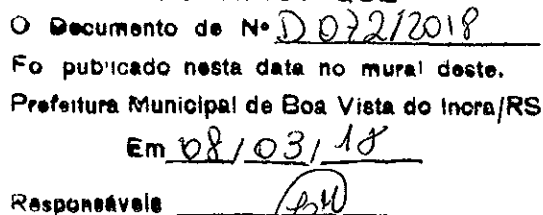 O Documento de Nº D 072/2018
Fo publicado nesta data no mural deste.
Prefeitura Municipal de Boa Vista do Incra/RS
Em 08/03/18
Responsáveis